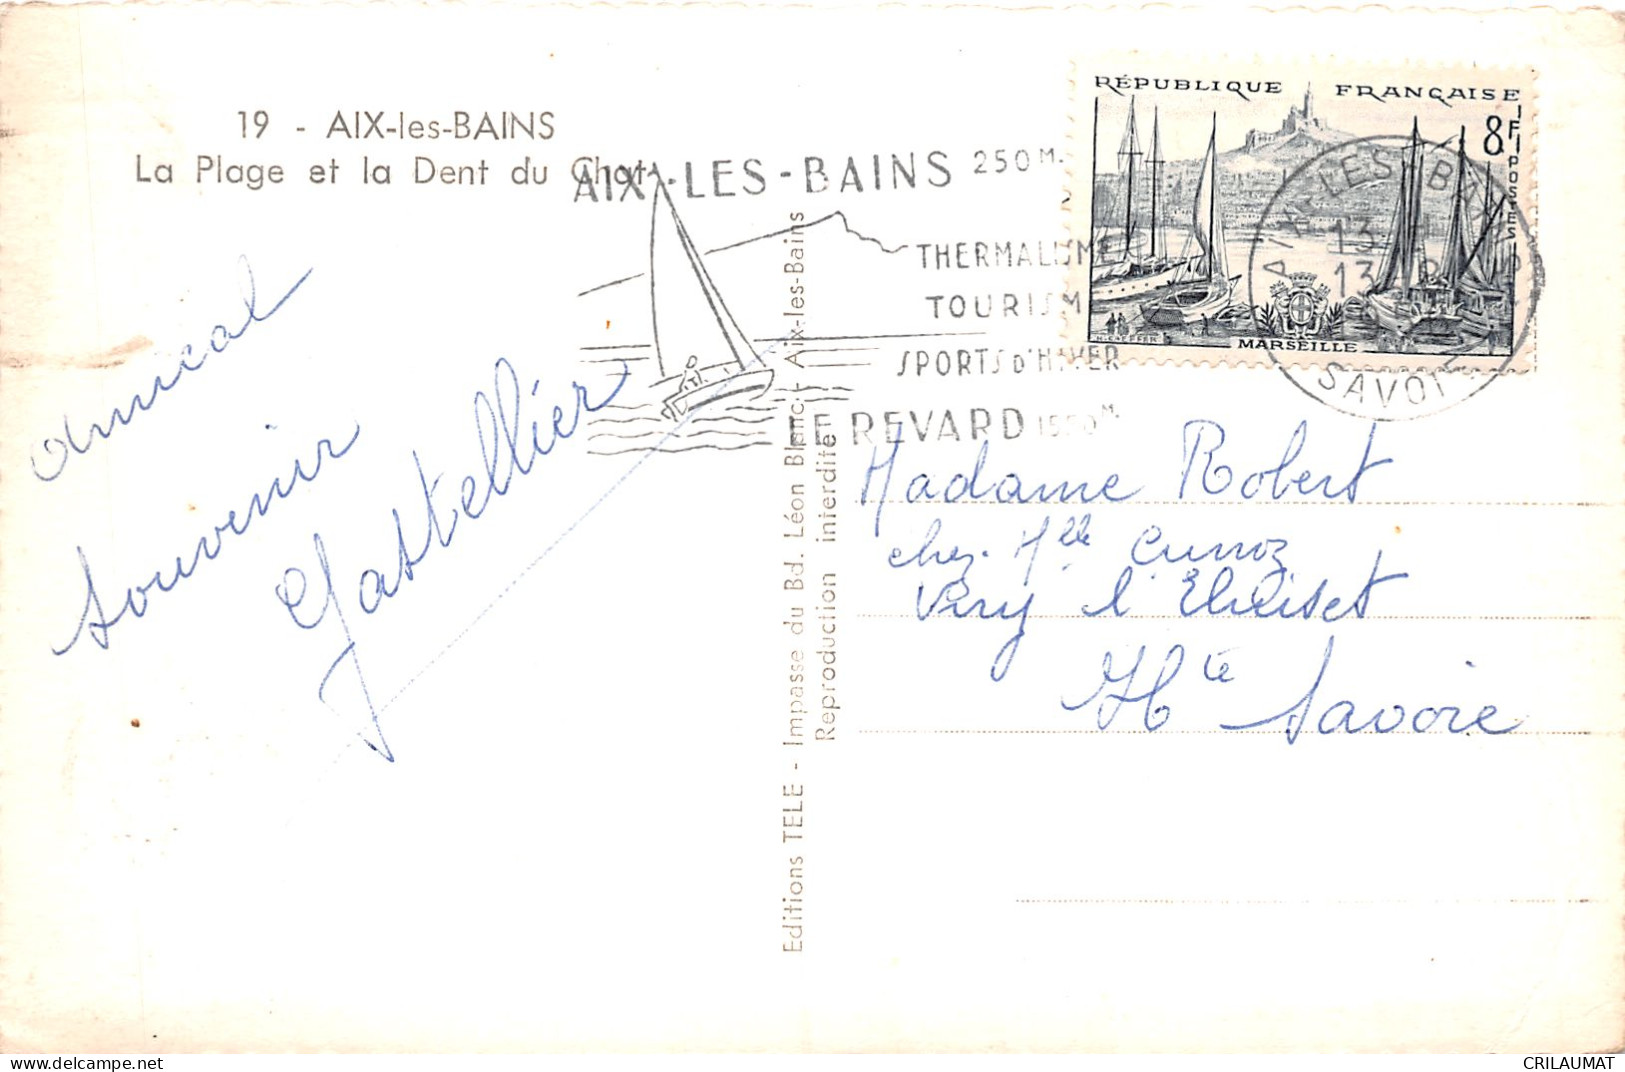 19 - AIX-les-BAINS
La Plage et la Dent du Chat
AIX-LES-BAINS 250 M.
THERMALISME
TOURISM
SPORTS D'HIVER
LE REVARD 1550 M.
RÉPUBLIQUE FRANÇAISE
8F
POSTES
MARSEILLE
AIX-LES-BAINS
13
13
SAVOIE
amical
souvenir
Gastellier
Editions TELE - Impasse du Bd. Léon Blanc - Aix-les-Bains
Reproduction interdite
Madame Robert
chez Mlle
Viry l'Eluiset
Hte Savoie
CRILAUMAT